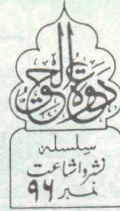 دعوۃ الحق
سلسلہ
نشر و اشاعت
نمبر ۹۶